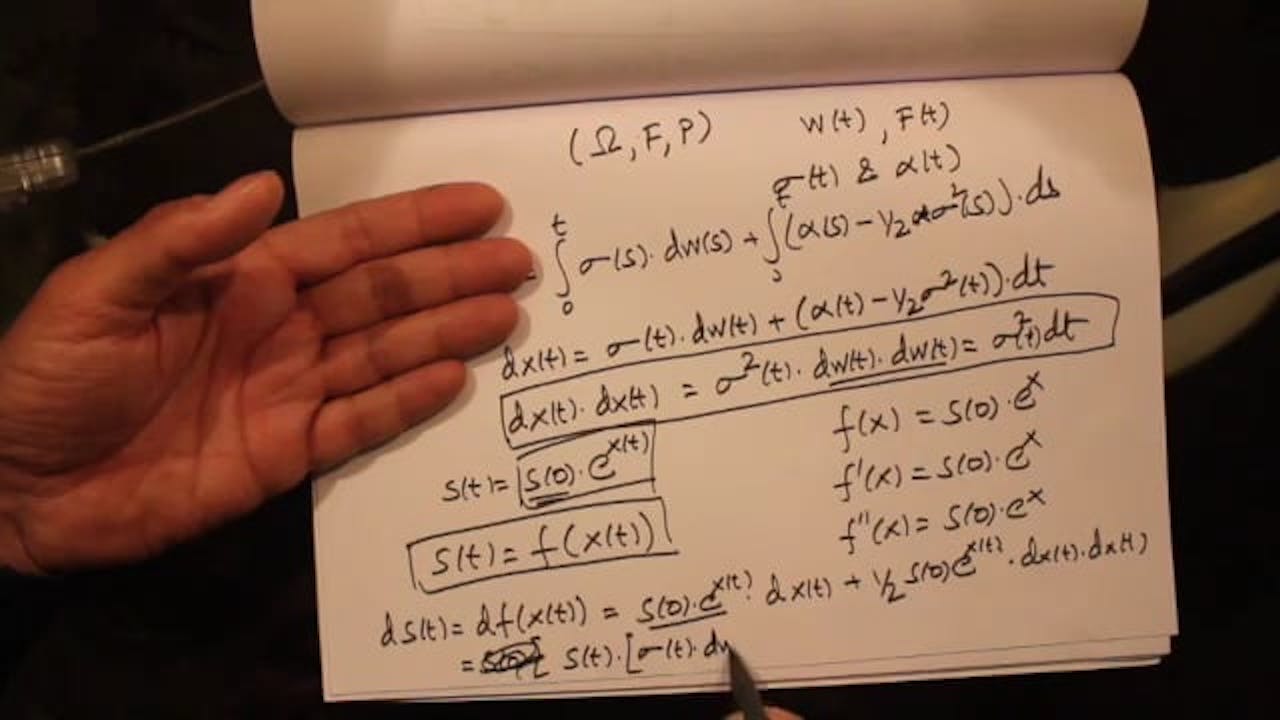 (Ω, F, P) W(t), F(t)
σ(t) & α(t)
= ∫₀ᵗ σ(s). dW(s) + ∫₀ᵗ (α(s) - 1/2 σ²(s)).ds
dX(t) = σ(t). dW(t) + (α(t) - 1/2 σ²(t)).dt
dX(t). dX(t) = σ²(t). dW(t). dW(t) = σ²(t) dt
f(x) = S(0). e^x
S(t) = S(0). e^X(t)
f'(x) = S(0). e^x
f''(x) = S(0). e^x
S(t) = f(X(t))
dS(t) = df(X(t)) = S(0). e^X(t). dX(t) + 1/2 S(0) e^X(t). dX(t). dX(t)
= S(t). [σ(t). dw